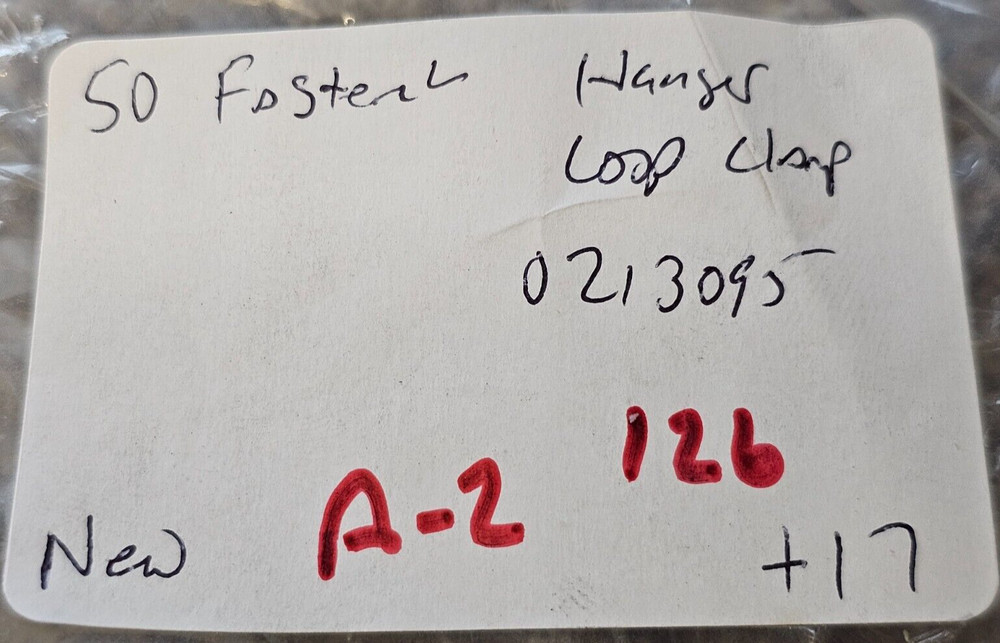 50 Fastenal Hanger
Loop Clamp
0213095
126
A-2
New +17